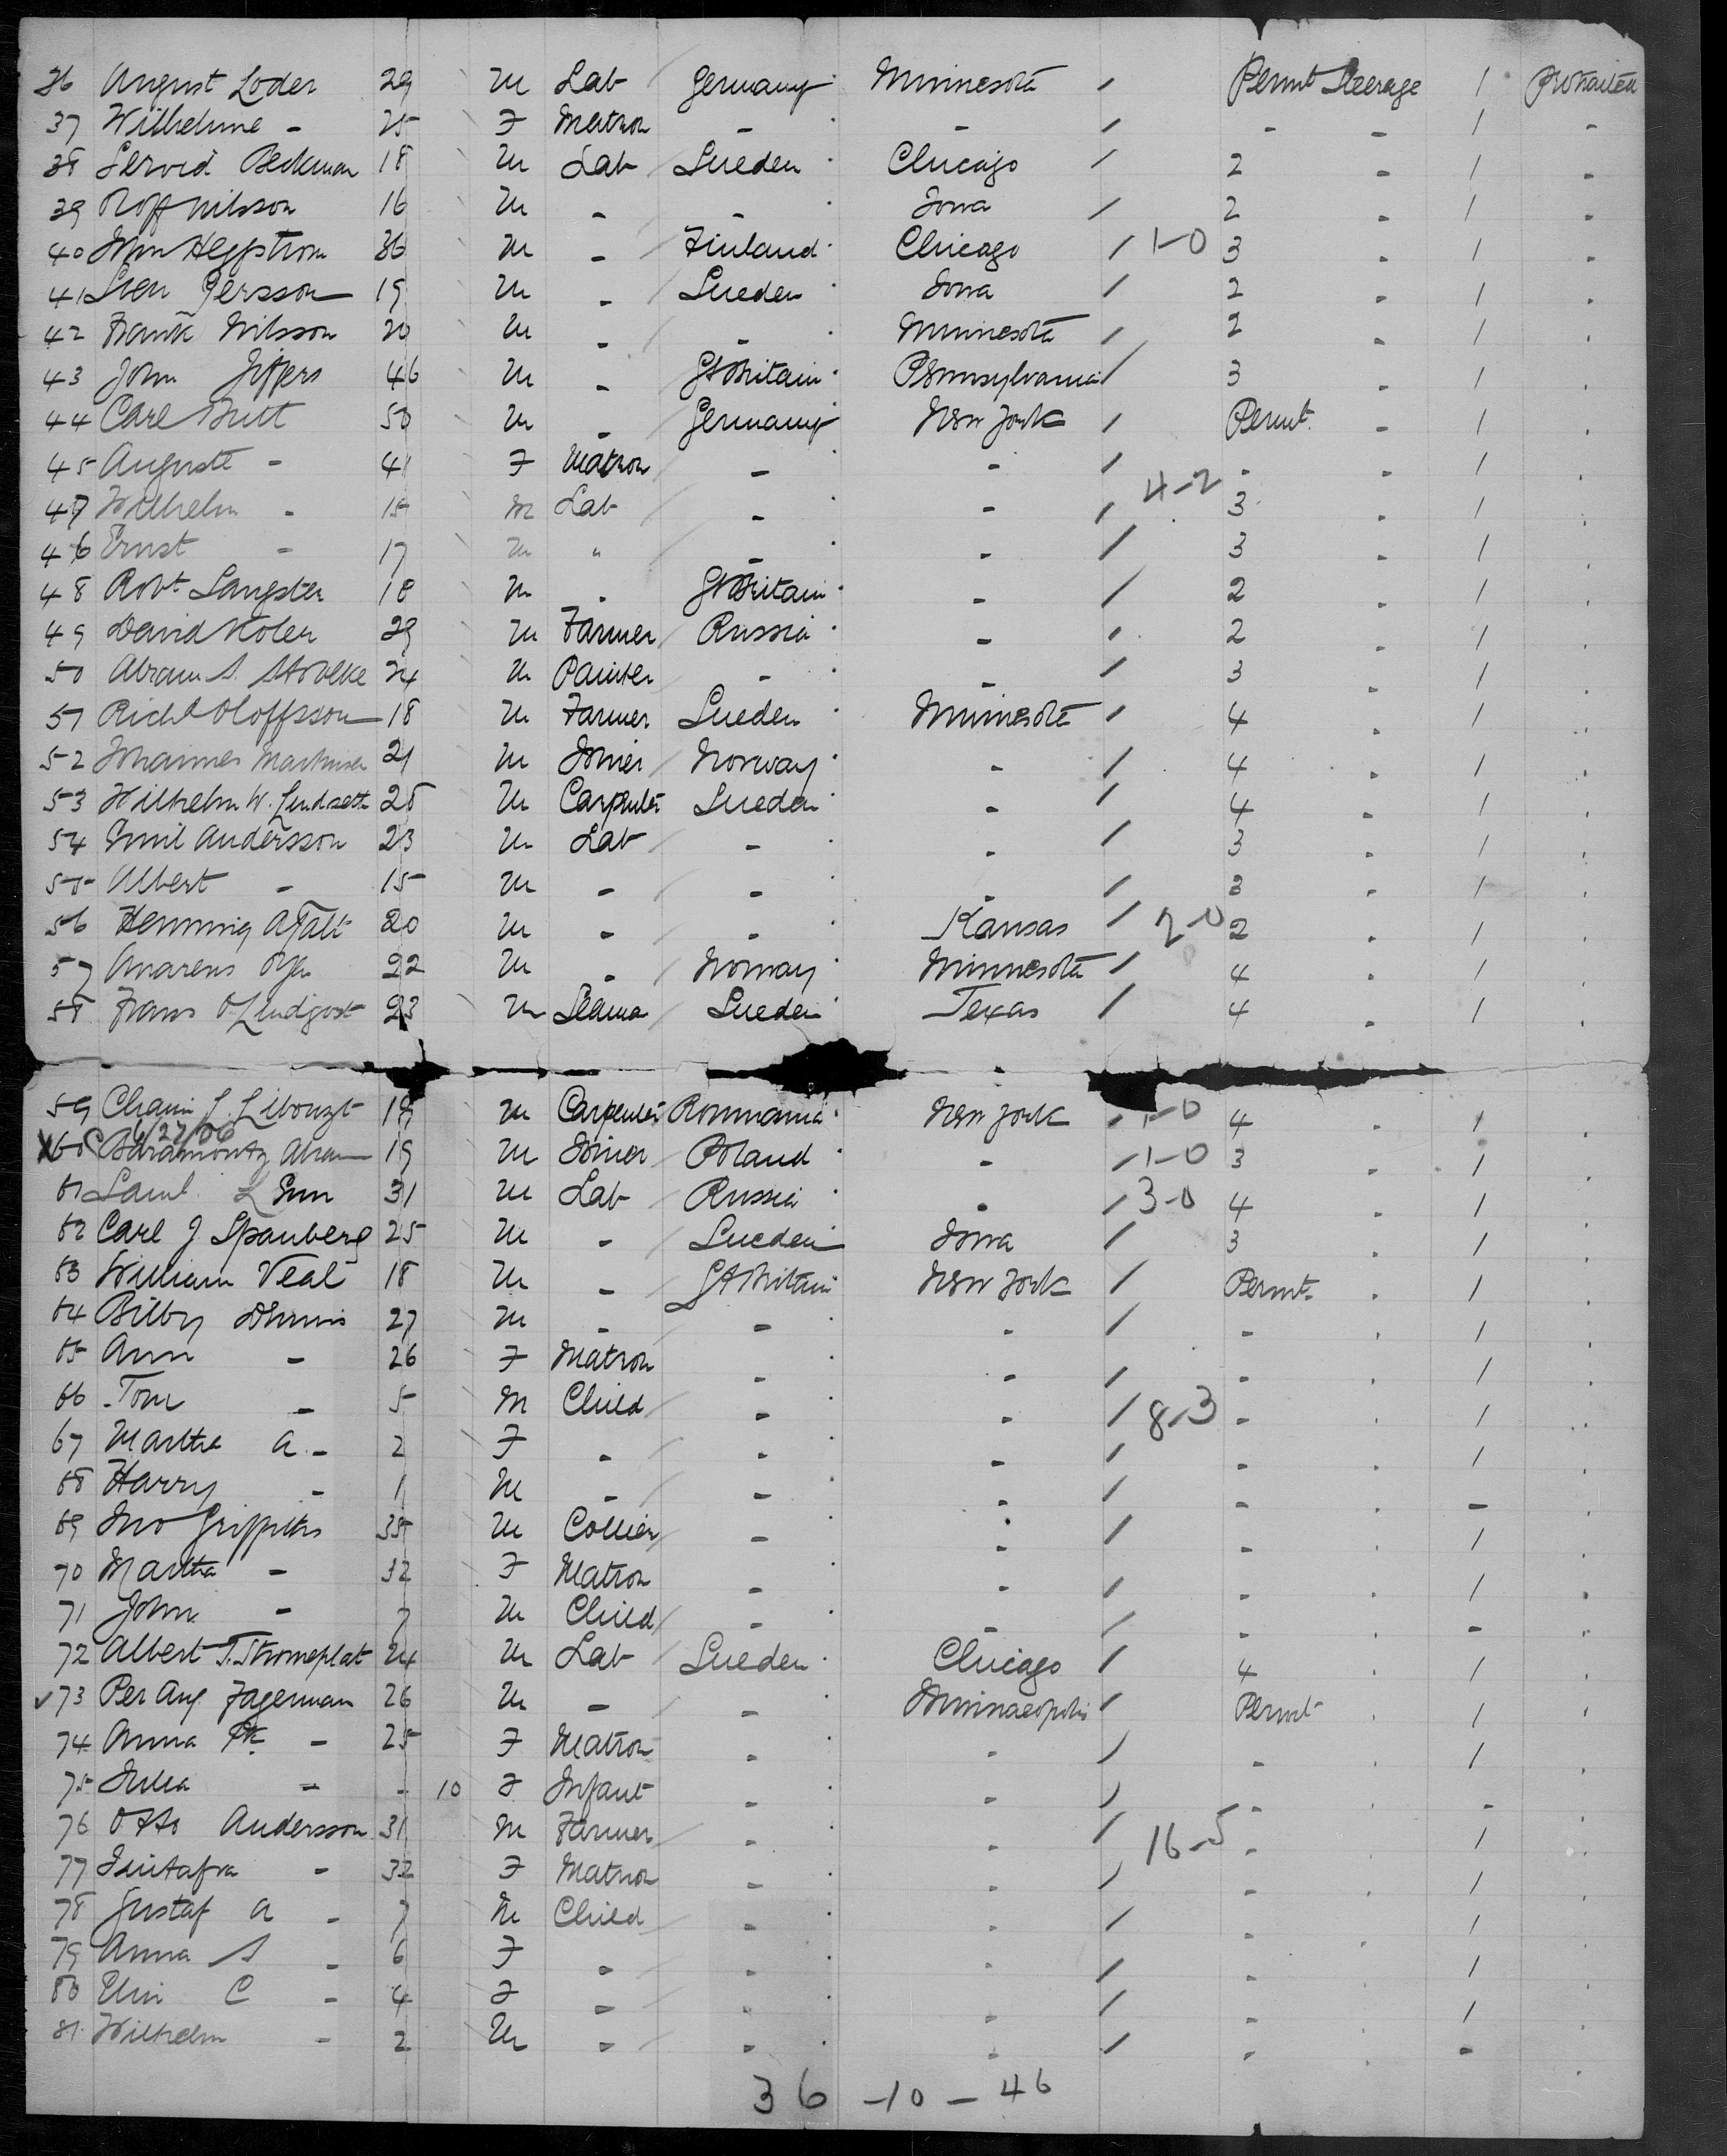 36 August Loder 29 M Lab Germany Minnesota / Permt Steerage / protracted
37 Wilhelmine - 25 F Matron - - / - - / -
38 Servid Beckman 18 M Lab Sweden Chicago / 2 - / -
39 Rolf Nilsson 16 M - - Iowa / 2 - / -
40 John Heggstrom 36 M - Finland Chicago / 1-0 3 - / -
41 Sven Persson 19 M - Sweden Iowa / 2 - / -
42 Frank Nilsson 20 M - - Minnesota / 2 - / -
43 John Jeffers 46 M - Gt Britain Pennsylvania / 3 - / -
44 Carl 50 M - Germany New York / Permt - / -
45 Auguste - 41 F Matron - - / - - / -
47 Wilhelm - 15 M Lab - - / 4-2 3 - / -
46 Ernst - 17 M " - - / 3 - / -
48 Robt Langster 18 M - Gt Britain - / 2 - / -
49 David Koler 29 M Farmer Russia - / 2 - / -
50 Abram S. 24 M Painter - - / 3 - / -
51 Richd Oloffsson 18 M Farmer Sweden Minnesota / 4 - / -
52 Johannes 21 M Joiner Norway - / 4 - / -
53 Wilhelm W. 25 M Carpenter Sweden - / 4 - / -
54 Emil Andersson 23 M Lab - - / 3 - / -
55 Albert - 15 M - - - / 3 - / -
56 Henning 20 M - - Kansas / 2-0 2 - / -
57 22 M - Norway Minnesota / 4 - / -
58 Frans O 23 M Sweden Texas / 4 - / -
59 Chaim 19 M Carpenter Roumania New York / 1-0 4 - / -
6/27/06
X60 Abram 19 M Joiner Poland - / 1-0 3 - / -
61 Saml. 31 M Lab Russia - / 3-0 4 - / -
62 Carl J Spanberg 25 M - Sweden Iowa / 3 - / -
63 William Veal 18 M - Gt Britain New York / Permt - / -
64 Bilby Dennis 27 M - - - / - - / -
65 Ann - 26 F Matron - - / - - / -
66 Tom - 5 M Child - - / 8-3 - - / -
67 Martha A - 2 F - - - / - - / -
68 Harry - 1 M - - - / - - - -
69 Jno Griffiths 35 M Collier - - / - - / -
70 Martha - 32 F Matron - - / - - / -
71 John - 7 M Child - - / - - - -
72 Albert T. Stromeplat 24 M Lab Sweden Chicago / 4 - / -
✓73 Per Aug Fagerman 26 M - - Minneapolis / Permt - / -
74 Anna - 25 F Matron - - / - - / -
75 Julia - - 10 F Infant - - / - - - -
76 Otto Andersson 31 M Farmer - - / 16-5 - - / -
77 - 32 F Matron - - / - - / -
78 Gustaf A - 7 M Child - - / - - / -
79 Anna S - 6 F - - - / - - / -
80 Elin C - 4 F - - - / - - / -
81 Wilhelm - 2 M - - - / - - - -
36 -10 - 46